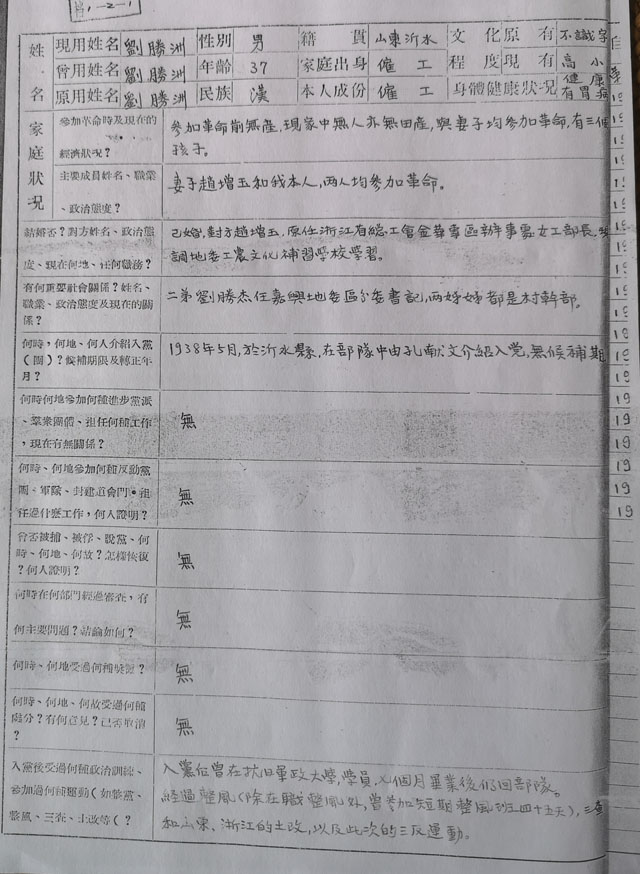 1-2-1
姓名 現用姓名 劉勝洲 性別 男 籍貫 山東沂水 文化程度 原有 不識字
曾用姓名 劉勝洲 年齡 37 家庭出身 僱工 現有 高小
原用姓名 劉勝洲 民族 漢 本人成份 僱工 身體健康狀況 健康 有胃病
家庭狀況
參加革命時及現在的
經濟狀况?
參加革命前無產,現家中無人亦無田產,與妻子均參加革命,有三個
孩子。
主要成員姓名、職業
、政治態度?
妻子趙增玉和我本人,兩人均參加革命。
結婚否?對方姓名、政治態
度、現在何地、任何職務?
已婚,對方趙增玉,原任浙江省總工會金華專區辦事處女工部長,
調地委工農文化補習學校學習。
有何重要社會關係?姓名、
職業、政治態度及現在的關
係?
二弟劉勝杰任嘉興地委區分委書記,两姊妹都是村幹部。
何時,何地、何人介紹入黨
(團)?候補期限及轉正年
月?
1938年5月,於沂水縣,在部隊中由孔献文介紹入党,無候補期
何時何地參加何種進步黨派
、羣衆團體、担任何種工作
,現在有無關係?
無
何時、何地參加何種反動黨
團、軍隊、封建道會門•担
任過什麽工作,何人證明?
無
曾否被捕、被俘、脫黨、何
時、何地、何故?怎樣恢復
?何人證明?
無
何時在何部門經過審查,有
何主要問題?結論如何?
無
何時、何地受過何種獎?
無
何時、何地、何故受過何種
處分?有何意見?已否取消
?
無
入黨後受過何種政治訓練、
參加過何種運動(如整黨、
整風、三查、土改等(?
入黨后曾在抗日軍政大學,學員,七個月畢業後仍回部隊。
經過整風(除在職整風外,曾參加短期整風班四十五天),三查
和山東、浙江的土改,以及此次的三反運動。
自
19
19
19
19
19
19
19
19
19
19